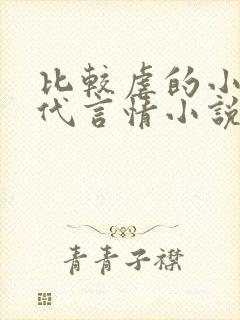 比较虐的小
代言情小說
青青子襟